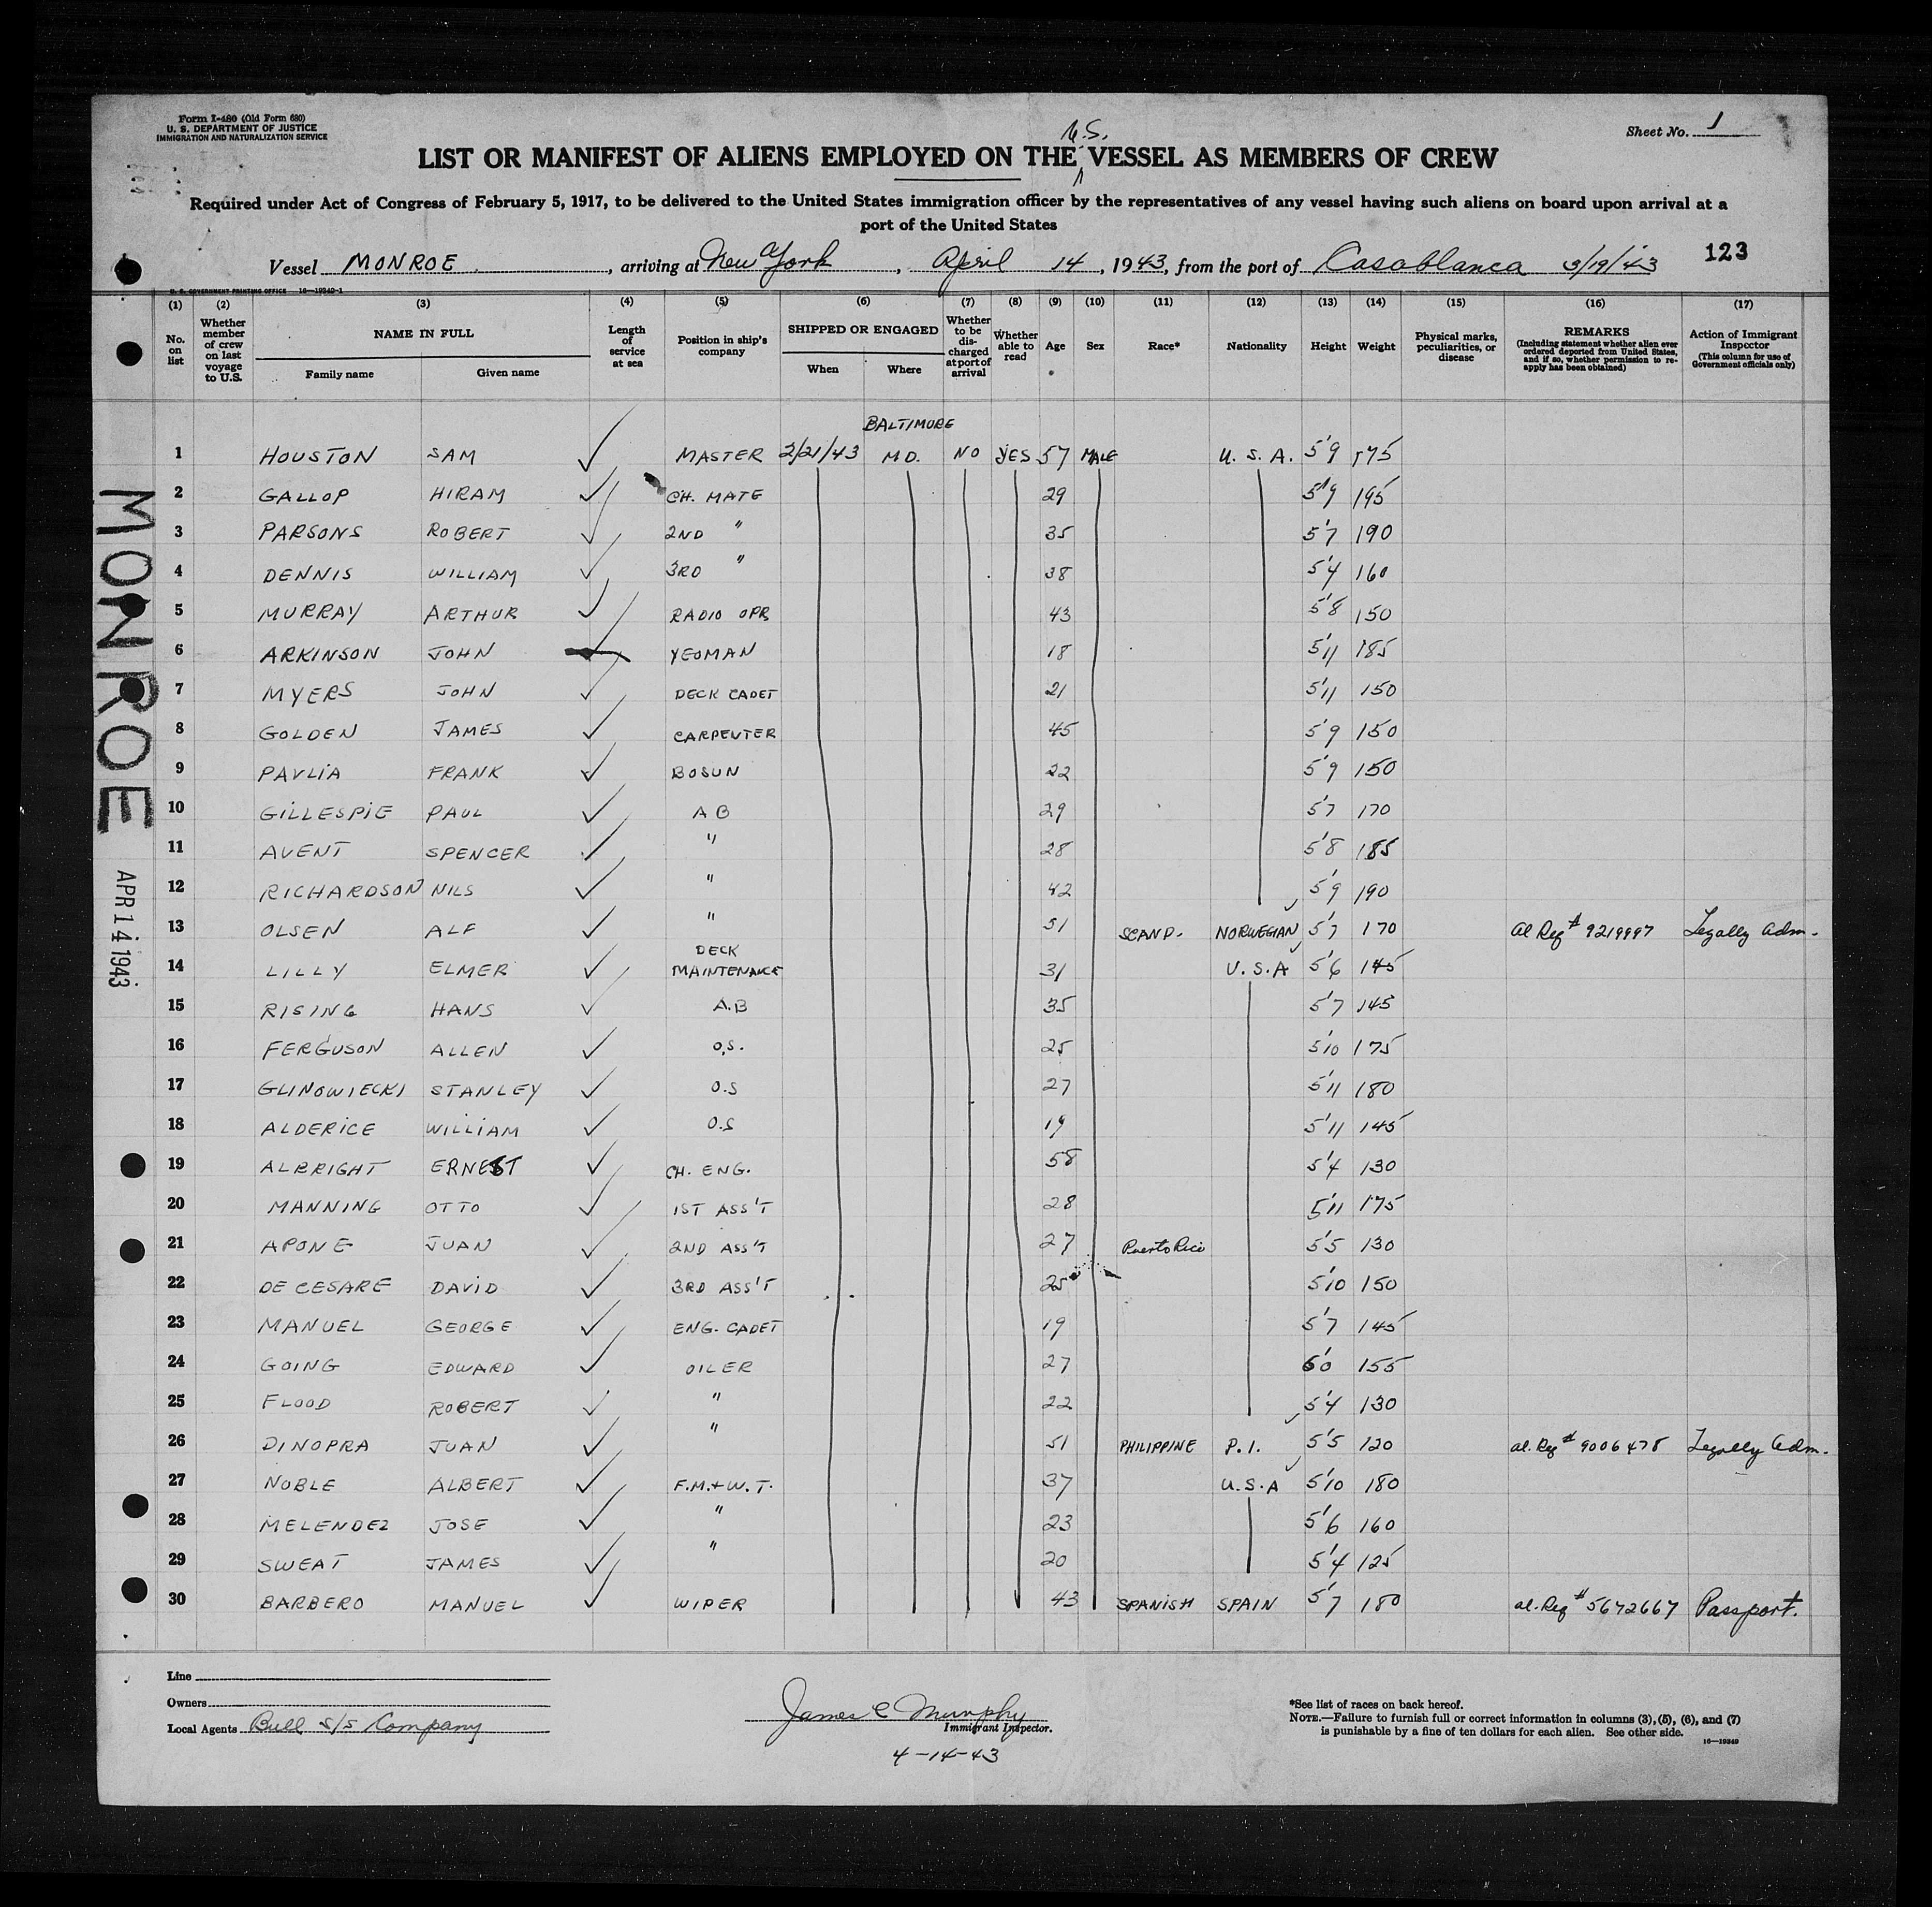 Form I-480 (Old Form 680)
U. S. DEPARTMENT OF JUSTICE
IMMIGRATION AND NATURALIZATION SERVICE
Sheet No. 1
U.S.
LIST OR MANIFEST OF ALIENS EMPLOYED ON THE VESSEL AS MEMBERS OF CREW
Required under Act of Congress of February 5, 1917, to be delivered to the United States immigration officer by the representatives of any vessel having such aliens on board upon arrival at a
port of the United States
Vessel MONROE, arriving at New York, April 14, 1943, from the port of Casablanca 3/19/43 123
U. S. GOVERNMENT PRINTING OFFICE 16—19340-1
(1) (2) (3) (4) (5) (6) (7) (8) (9) (10) (11) (12) (13) (14) (15) (16) (17)
No. on list
Whether member of crew on last voyage to U.S.
NAME IN FULL
Family name Given name
Length of service at sea
Position in ship's company
SHIPPED OR ENGAGED
When Where
Whether to be discharged at port of arrival
Whether able to read
Age
Sex
Race*
Nationality
Height
Weight
Physical marks, peculiarities, or disease
REMARKS
(Including statement whether alien ever ordered deported from United States, and if so, whether permission to reapply has been obtained)
Action of Immigrant Inspector
(This column for use of Government officials only)
BALTIMORE
1 HOUSTON SAM ✓ MASTER 2/21/43 MD. NO YES 57 MALE U. S. A. 5'9 175
2 GALLOP HIRAM ✓ CH. MATE 29 5'9 195
3 PARSONS ROBERT ✓ 2ND " 35 5'7 190
4 DENNIS WILLIAM ✓ 3RD " 38 5'4 160
5 MURRAY ARTHUR ✓ RADIO OPR 43 5'8 150
6 ARKINSON JOHN ✓ YEOMAN 18 5'11 185
7 MYERS JOHN ✓ DECK CADET 21 5'11 150
8 GOLDEN JAMES ✓ CARPENTER 45 5'9 150
9 PAVLIA FRANK ✓ BOSUN 22 5'9 150
10 GILLESPIE PAUL ✓ AB 29 5'7 170
11 AVENT SPENCER ✓ " 28 5'8 185
12 RICHARDSON NILS ✓ " 42 5'9 190
13 OLSEN ALF ✓ " 51 SCAND. NORWEGIAN 5'7 170 al Reg # 9219997 Legally Adm.
14 LILLY ELMER ✓ DECK MAINTENANCE 31 U.S.A 5'6 145
15 RISING HANS ✓ A.B 35 5'7 145
16 FERGUSON ALLEN ✓ O.S. 25 5'10 175
17 GLINOWIECKI STANLEY ✓ O.S 27 5'11 180
18 ALDERICE WILLIAM ✓ O.S 19 5'11 145
19 ALBRIGHT ERNEST ✓ CH. ENG. 58 5'4 130
20 MANNING OTTO ✓ 1ST ASS'T 28 5'11 175
21 APONE JUAN ✓ 2ND ASS'T 27 Puerto Rico 5'5 130
22 DE CESARE DAVID ✓ 3RD ASS'T 25 5'10 150
23 MANUEL GEORGE ✓ ENG. CADET 19 5'7 145
24 GOING EDWARD ✓ OILER 27 6'0 155
25 FLOOD ROBERT ✓ " 22 5'4 130
26 DINOPRA JUAN ✓ " 51 PHILIPPINE P.I. 5'5 120 al. Reg # 9006478 Legally Adm.
27 NOBLE ALBERT ✓ F.M.+W.T. 37 U.S.A 5'10 180
28 MELENDEZ JOSE ✓ " 23 5'6 160
29 SWEAT JAMES ✓ " 20 5'4 125
30 BARBERO MANUEL ✓ WIPER 43 SPANISH SPAIN 5'7 180 al. Reg # 5672667 Passport.
MONROE
APR 14 1943
Line
Owners
Local Agents Bull S/S Company
James E Murphy
Immigrant Inspector.
4-14-43
*See list of races on back hereof.
NOTE.—Failure to furnish full or correct information in columns (3), (5), (6), and (7)
is punishable by a fine of ten dollars for each alien. See other side.
16—19340